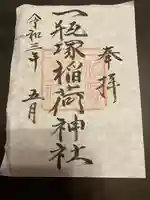 奉拝
一瓶塚稲荷神社
令和三年
五月